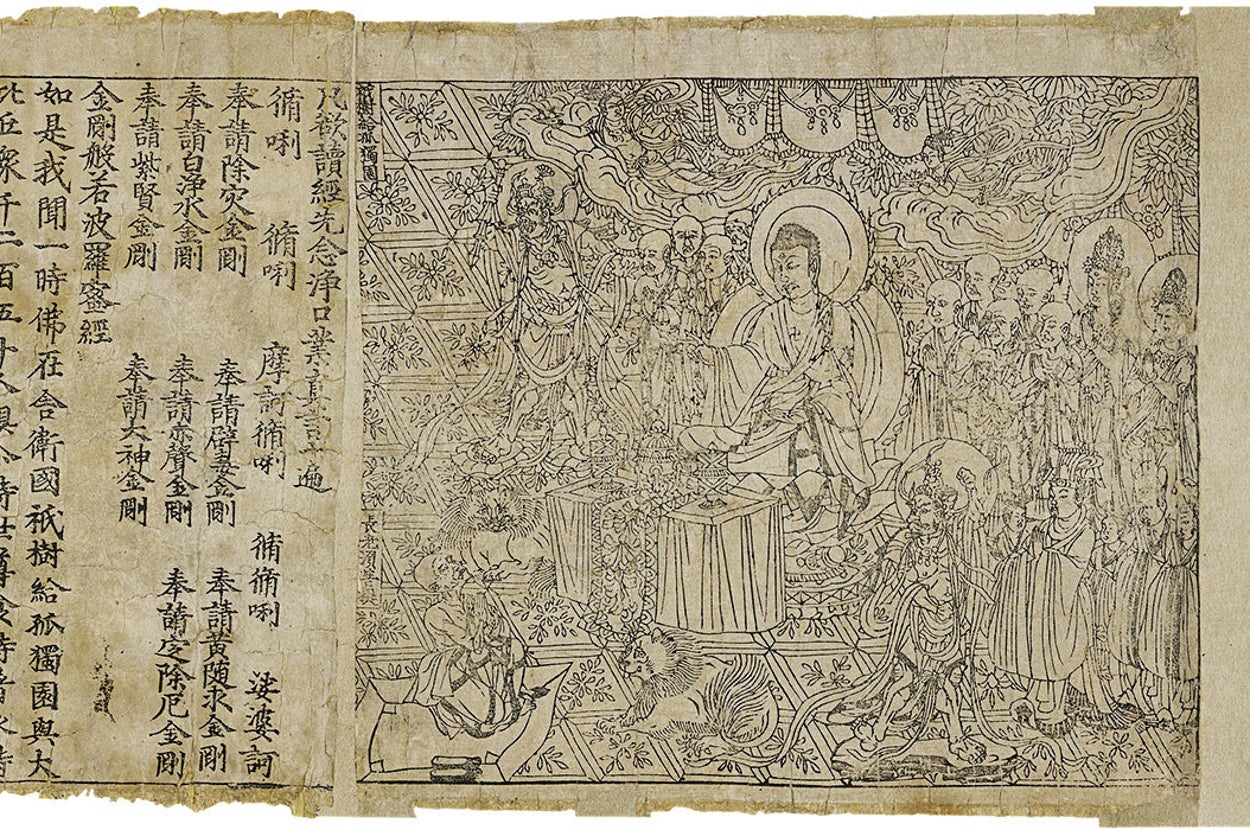 祇樹給孤獨園
長老須菩提
凡欲讀經先念淨口業真言一遍
脩唎 脩唎 摩訶脩唎 脩脩唎 娑婆訶
奉請除灾金剛 奉請辟毒金剛 奉請黄随求金剛
奉請白淨水金剛 奉請赤聲金剛 奉請定除厄金剛
奉請紫賢金剛 奉請大神金剛
金剛般若波羅蜜經
如是我聞一時佛在舍衛國祇樹給孤獨園與大
比丘衆千二百五十人俱尒時世尊食時著衣持